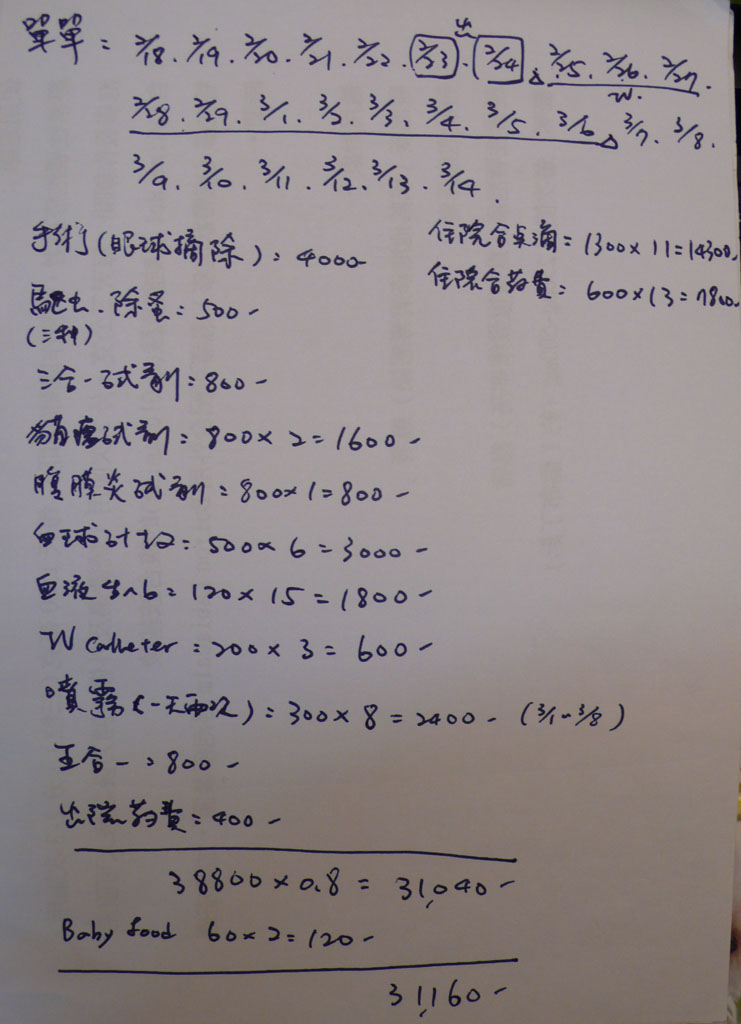 單單 = 2/18. 2/19. 2/20. 2/21. 2/22. 2/23. 2/24. 2/25. 2/26. 2/27.
出
IV.
2/28. 2/29. 3/1. 3/2. 3/3. 3/4. 3/5. 3/6. 3/7. 3/8.
3/9. 3/10. 3/11. 3/12. 3/13. 3/14.
手術(眼球摘除): 4000-
住院含點滴 = 1300 x 11 = 14300
住院含葯費 = 600 x 13 = 7800
驅虫.除蚤: 500-
(三種)
三合一試劑: 800-
貓瘟試劑: 800 x 2 = 1600-
腹膜炎試劑: 800 x 1 = 800-
血球計數 = 500 x 6 = 3000-
血液生化 = 120 x 15 = 1800-
IV Catheter = 200 x 3 = 600-
噴霧(一天兩次) = 300 x 8 = 2400- (3/1~3/8)
五合一: 800-
出院葯費 = 400-
38800 x 0.8 = 31,040-
Baby food 60 x 2 = 120-
31,160-